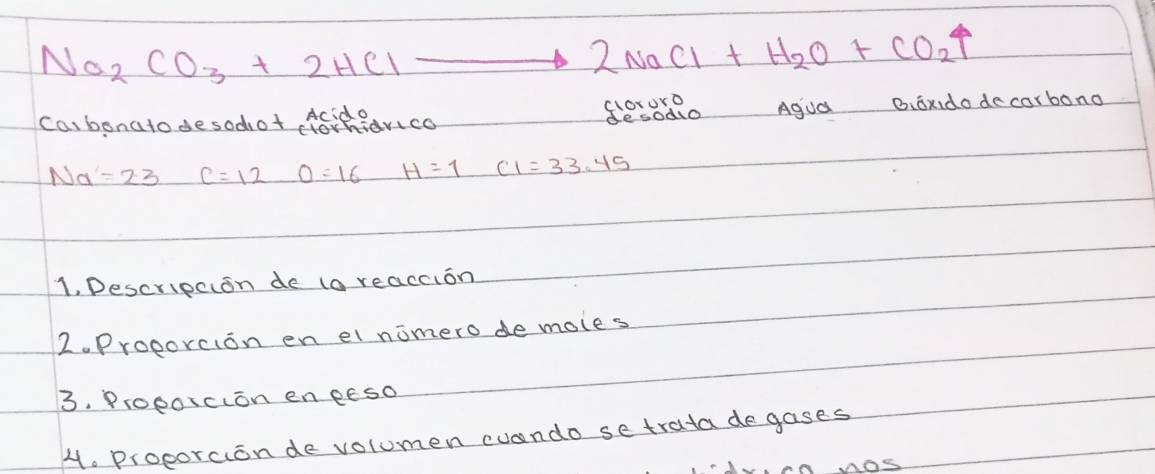 Na2 CO3 + 2HCl → 2NaCl + H2O + CO2↑
Carbonato de sodio + Acido clorhidrico cloruro de sodio Agua Bióxido de carbono
Na = 23 C = 12 O = 16 H = 1 Cl = 33.45
1. Descripción de la reacción
2. Proporción en el número de moles
3. Proporción en peso
4. Proporción de volumen cuando se trata de gases
nos